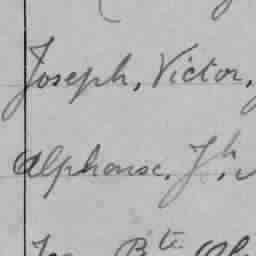 Joseph, Victor,
Alphonse, Jh,
Bte